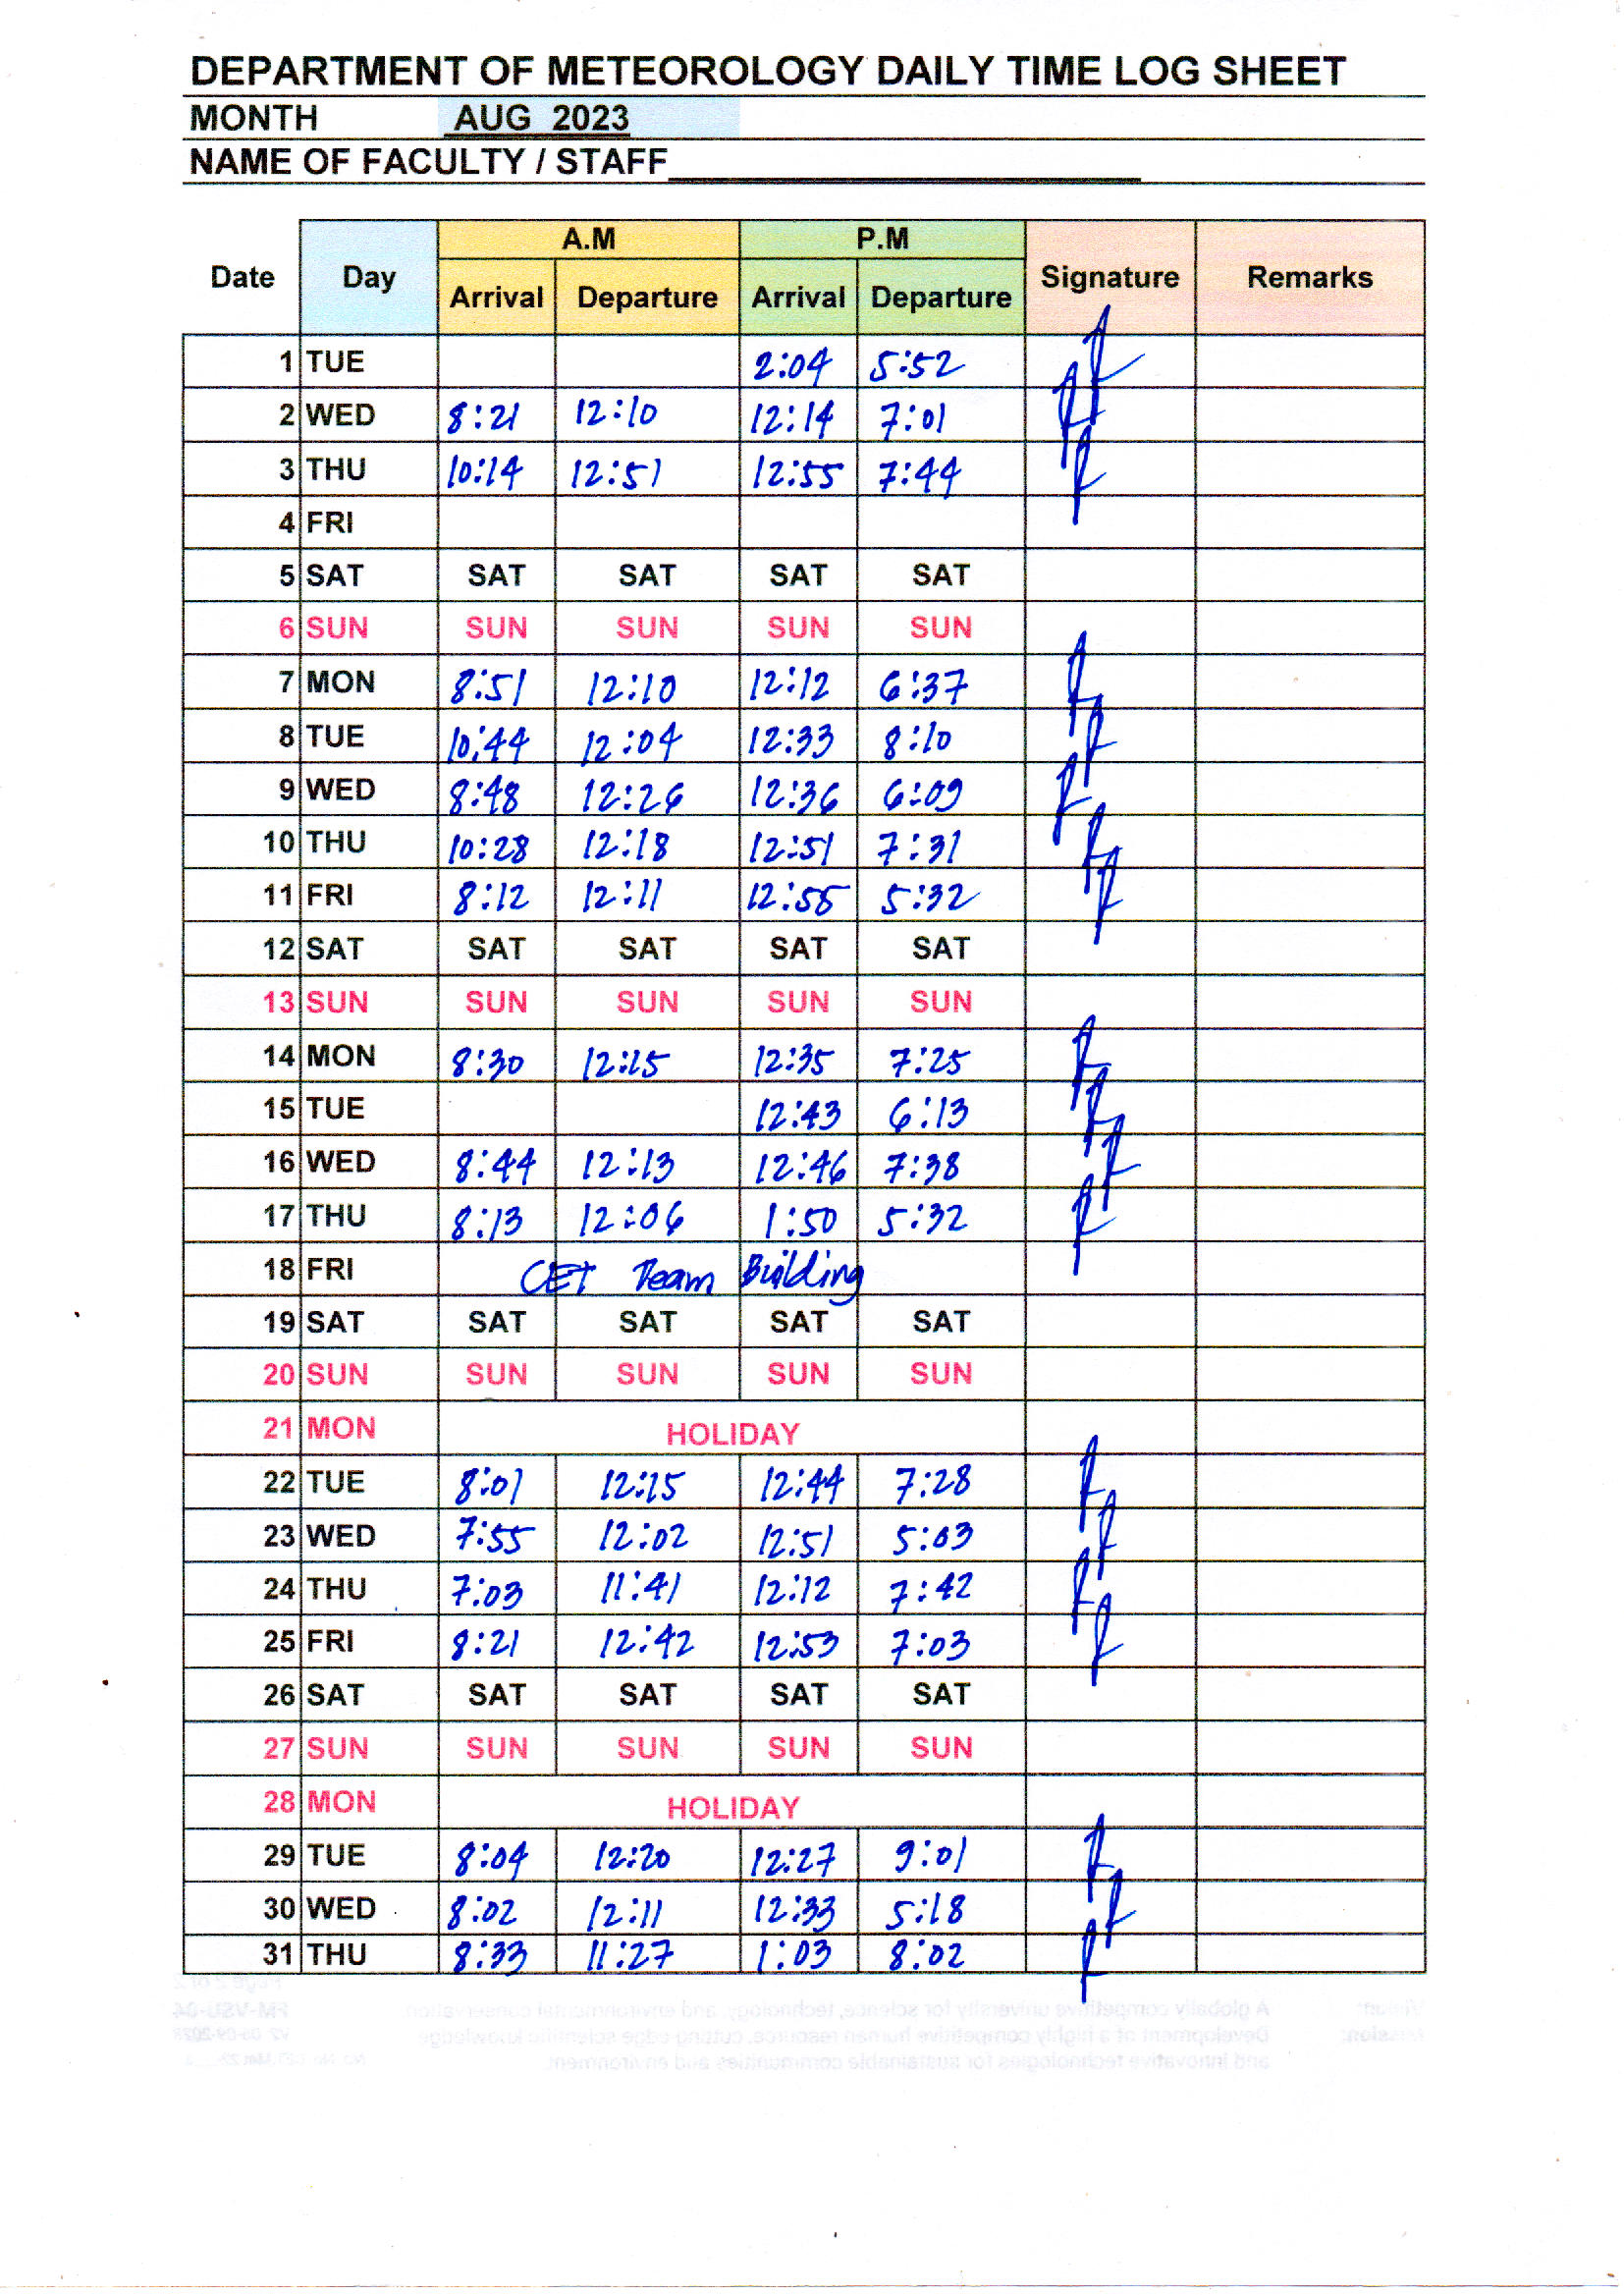 DEPARTMENT OF METEOROLOGY DAILY TIME LOG SHEET
MONTH AUG 2023
NAME OF FACULTY / STAFF
A.M P.M
Date Day Signature Remarks
Arrival Departure Arrival Departure
1 TUE 2:04 5:52
2 WED 8:21 12:10 12:14 7:01
3 THU 10:14 12:51 12:55 7:44
4 FRI
5 SAT SAT SAT SAT SAT
6 SUN SUN SUN SUN SUN
7 MON 8:51 12:10 12:12 6:37
8 TUE 10:44 12:04 12:33 8:10
9 WED 8:48 12:26 12:36 6:09
10 THU 10:28 12:18 12:51 7:31
11 FRI 8:12 12:11 12:58 5:32
12 SAT SAT SAT SAT SAT
13 SUN SUN SUN SUN SUN
14 MON 8:30 12:15 12:35 7:25
15 TUE 12:43 6:13
16 WED 8:44 12:13 12:46 7:38
17 THU 8:13 12:06 1:50 5:32
18 FRI CET Team Building
19 SAT SAT SAT SAT SAT
20 SUN SUN SUN SUN SUN
21 MON HOLIDAY
22 TUE 8:01 12:15 12:44 7:28
23 WED 7:55 12:02 12:51 5:03
24 THU 7:03 11:41 12:12 7:42
25 FRI 8:21 12:42 12:53 7:03
26 SAT SAT SAT SAT SAT
27 SUN SUN SUN SUN SUN
28 MON HOLIDAY
29 TUE 8:04 12:20 12:27 9:01
30 WED 8:02 12:11 12:33 5:18
31 THU 8:33 11:27 1:03 8:02
Vision: A globally competitive university for science, technology, and environmental conservation
Mission: Development of a highly competitive human resource, cutting-edge scientific knowledge
and innovative technologies for sustainable communities and environment